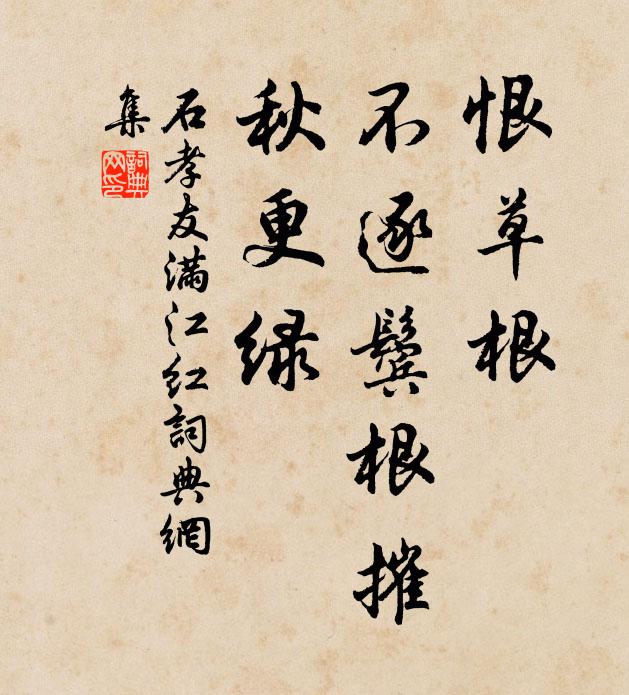 恨草根
不逐鬓根摧
秋更绿
石孝友满江红詞典網
集
詞典网印